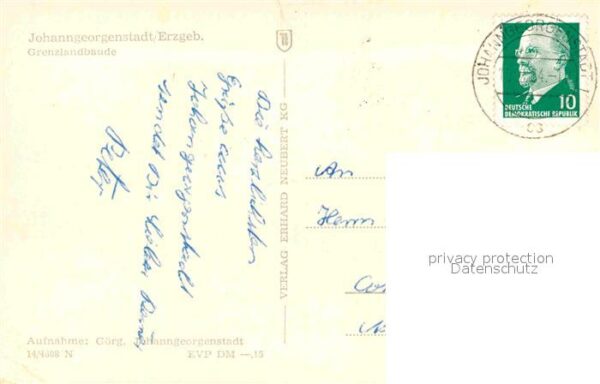 Johanngeorgenstadt/Erzgeb.
Grenzlandbaude
Die herzlichsten
Grüße aus
Johanngeorgenstadt
sendet Dir lieber
Peter
Aufnahme: Görg, Johanngeorgenstadt
14/4608 N EVP DM —.15
VERLAG ERHARD NEUBERT KG
JOHANNGEORGENSTADT 1
DEUTSCHE
DEMOKRATISCHE REPUBLIK
10
An
Herrn
privacy protection
Datenschutz